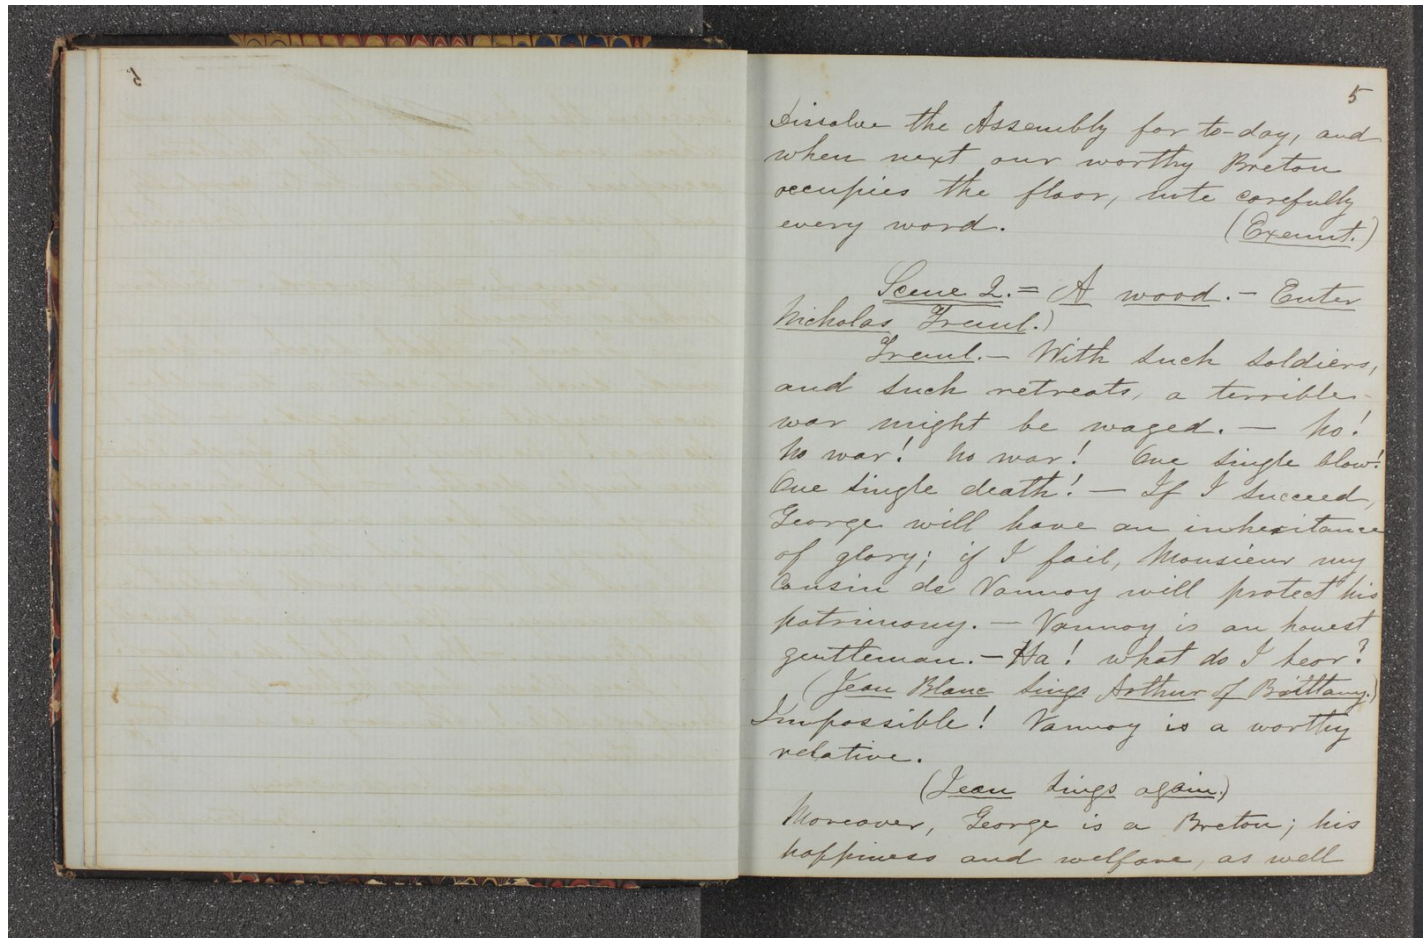 5
dissolve the Assembly for to-day, and
when next our worthy Breton
occupies the floor, note carefully
every word. (Exeunt.)
Scene 2. = A wood. - Enter
Nicholas Treml.)
Treml. - With such soldiers,
and such retreats, a terrible
war might be waged. - No!
No war! No war! One single blow!
One single death! - If I succeed,
George will have an inheritance
of glory; if I fail, Monsieur my
Cousin de Vannoy will protect his
patrimony. - Vannoy is an honest
gentleman. - Ha! what do I hear?
(Jean Blanc sings Arthur of Brittany.)
Impossible! Vannoy is a worthy
relative.
(Jean sings again.)
Moreover, George is a Breton; his
happiness and welfare, as well